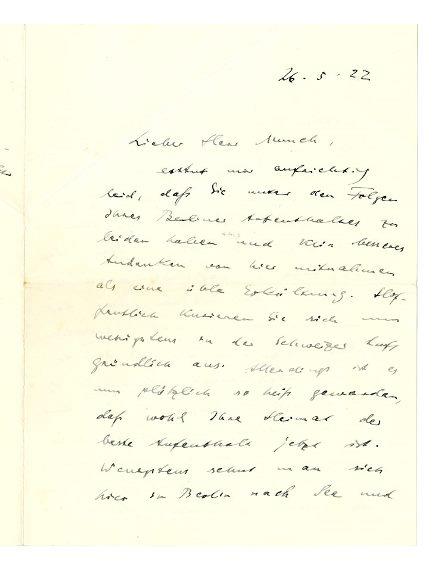 26.5.22
Lieber Herr Munch,
es thut mir aufrichtig
leid, daß Sie unter den Folgen
Ihres Berliner Aufenthaltes zu
leiden haben und kein besseres
Andenken von hier mitnahmen
als eine üble Erkältung. Hof-
fentlich kurieren Sie sich nun
wenigstens in der Schweizer Luft
gründlich aus. Allerdings ist es
nun plötzlich so heiß geworden,
daß wohl Ihre Heimat der
beste Aufenthalt jetzt ist.
Wenigstens sehnt man sich
hier in Berlin nach See und